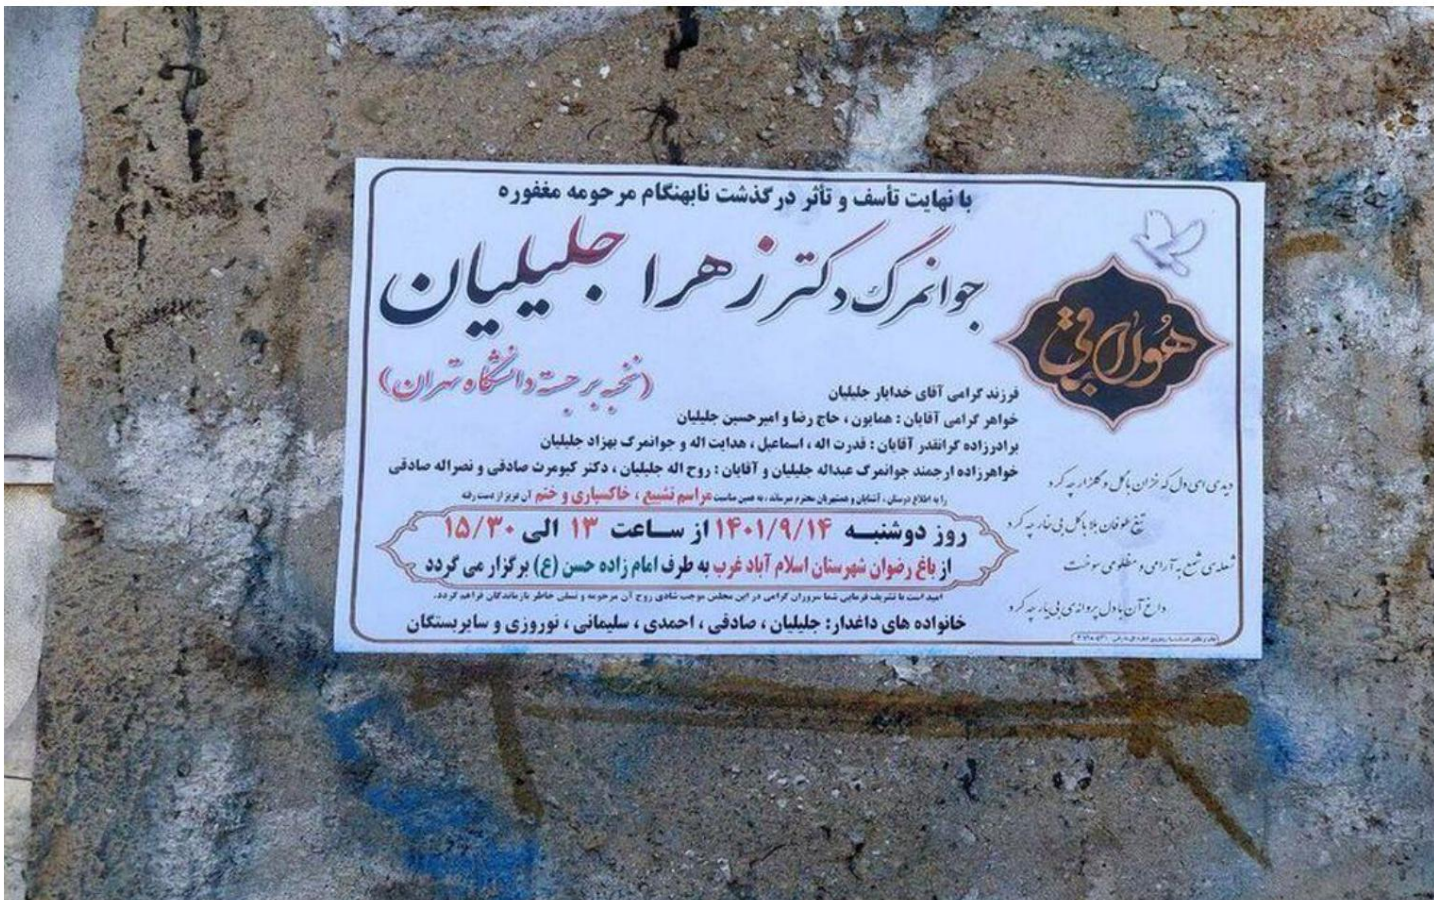 با نهایت تأسف و تأثر درگذشت نابهنگام مرحومه مغفوره
جوانمرگ دکتر زهرا جلیلیان
(نخبه برجسته دانشگاه تهران)
هوالباقی
فرزند گرامی آقای خدایار جلیلیان
خواهر گرامی آقایان : همایون ، حاج رضا و امیرحسین جلیلیان
برادرزاده گرانقدر آقایان : قدرت اله ، اسماعیل ، هدایت اله و جوانمرگ بهزاد جلیلیان
خواهرزاده ارجمند جوانمرگ عبداله جلیلیان و آقایان : روح اله جلیلیان ، دکتر کیومرث صادقی و نصراله صادقی
را به اطلاع دوستان ، آشنایان و همشهریان محترم میرساند ، به همین مناسبت مراسم تشییع ، خاکسپاری و ختم آن عزیز از دست رفته
روز دوشنبه ۱۴۰۱/۹/۱۴ از ساعت ۱۳ الی ۱۵/۳۰
از باغ رضوان شهرستان اسلام آباد غرب به طرف امام زاده حسن (ع) برگزار می گردد
امید است با تشریف فرمایی شما سروران گرامی در این مجلس موجب شادی روح آن مرحومه و تسلی خاطر بازماندگان فراهم گردد.
خانواده های داغدار: جلیلیان ، صادقی ، احمدی ، سلیمانی ، نوروزی و سایربستگان
دیدی ای دل که خزان با گل و گلزار چه کرد
تیغ طوفان بلا با گل بی خار چه کرد
شعله ی شمع به آرامی و مظلومی سوخت
داغ آن با دل پروانه ی بی یار چه کرد